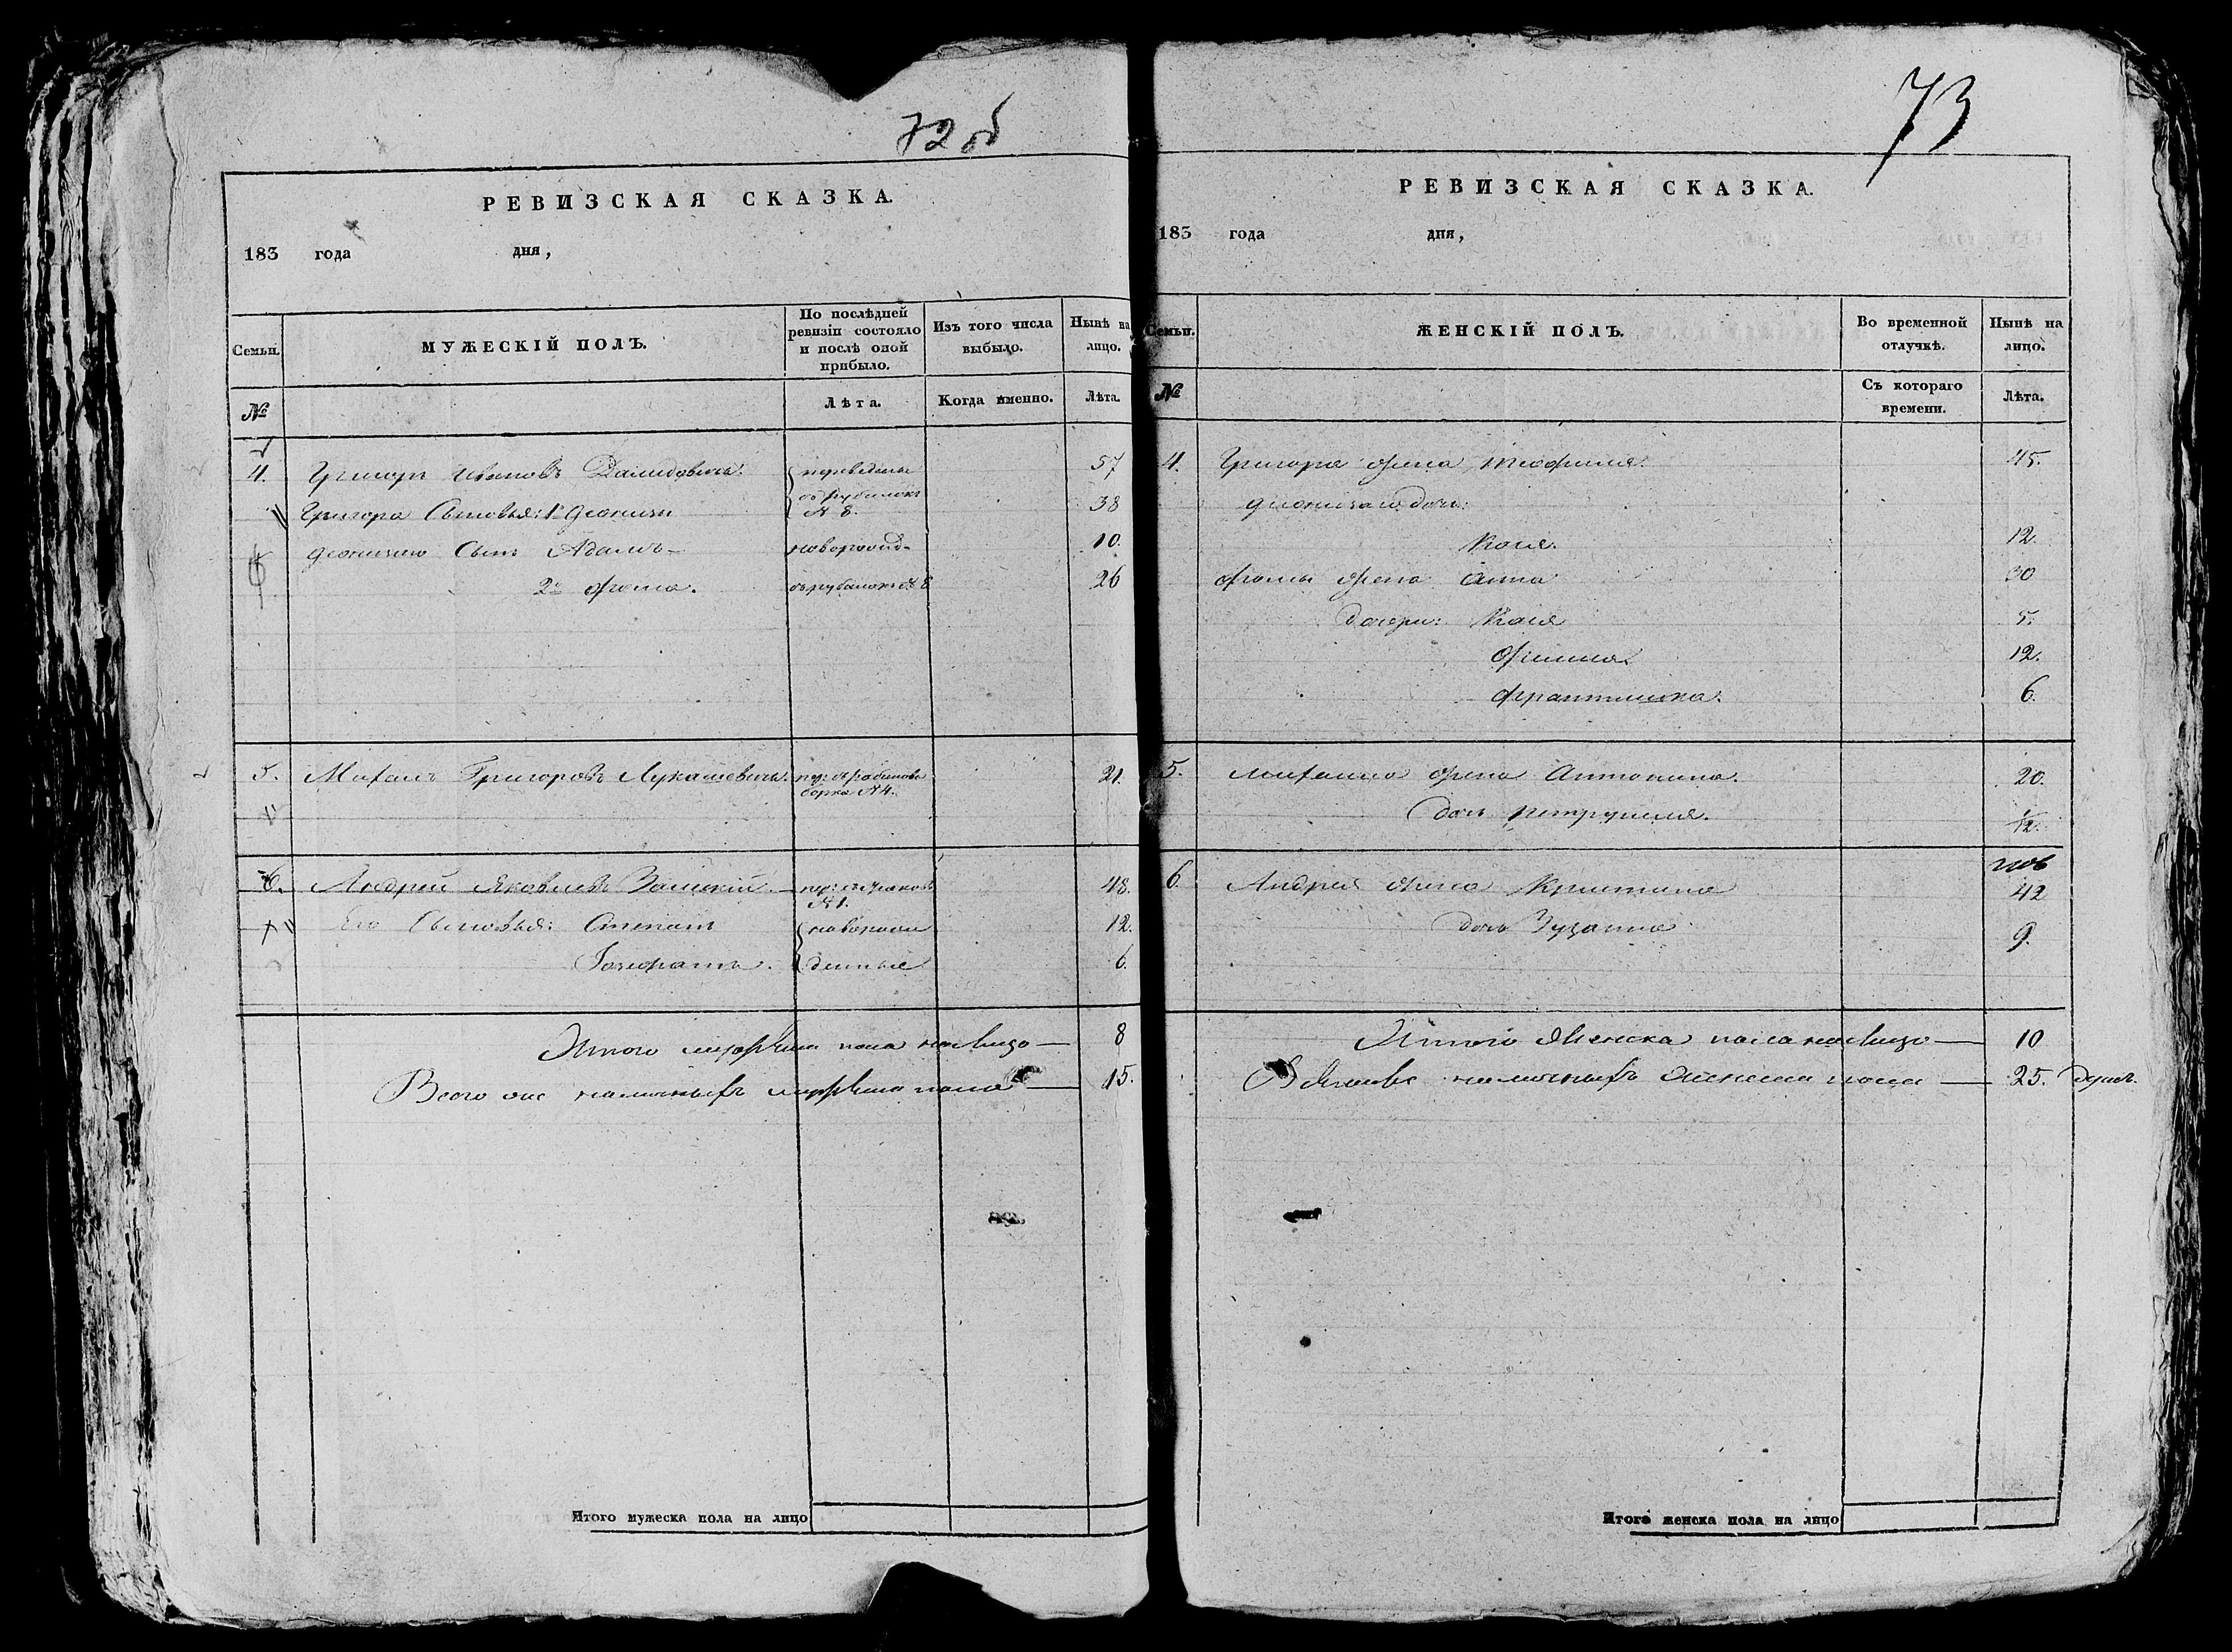 72 об
РЕВИЗСКАЯ СКАЗКА.
183 года дня,
Семьи. МУЖЕСКІЙ ПОЛЪ. По послѣдней ревизіи состояло и послѣ оной прибыло. Изъ того числа выбыло. Нынѣ на лицо.
№ Лѣта. Когда именно. Лѣта.
4. Григоръ Ивановъ Далидовичъ переведены 57
Григора Сыновья: 1й Діонизи № 8. 38
Діонизаго Сынъ Адамъ новорожд. 10.
2й Фома. 26
5. Михалъ Григоровъ Лукашевичъ 21.
№ 4.
6. Андрей Яковлевъ 48.
№ 1.
Его Сыновья: Степанъ новорож 12.
денные 6.
Итого мужеска пола на лицо — 8
Всего наличныхъ мужеска пола — 15.
Итого мужеска пола на лицо
73
РЕВИЗСКАЯ СКАЗКА.
183 года дня,
Семьи. ЖЕНСКІЙ ПОЛЪ. Во временной отлучкѣ. Нынѣ на лицо.
№ Съ котораго времени. Лѣта.
4. Григора жена Теофиля. 45.
Діонизаго дочь:
12.
Фомы жена Анна 30
дочери: 5.
12.
Франтишка. 6.
5. Михала жена Антонина. 20.
дочь Петрунеля. 1/12
6. Андрея жена Криштина 42
дочь Зузанна 9.
Итого женска пола на лицо — 10
наличныхъ женска пола — 25. душъ.
Итого женска пола на лицо